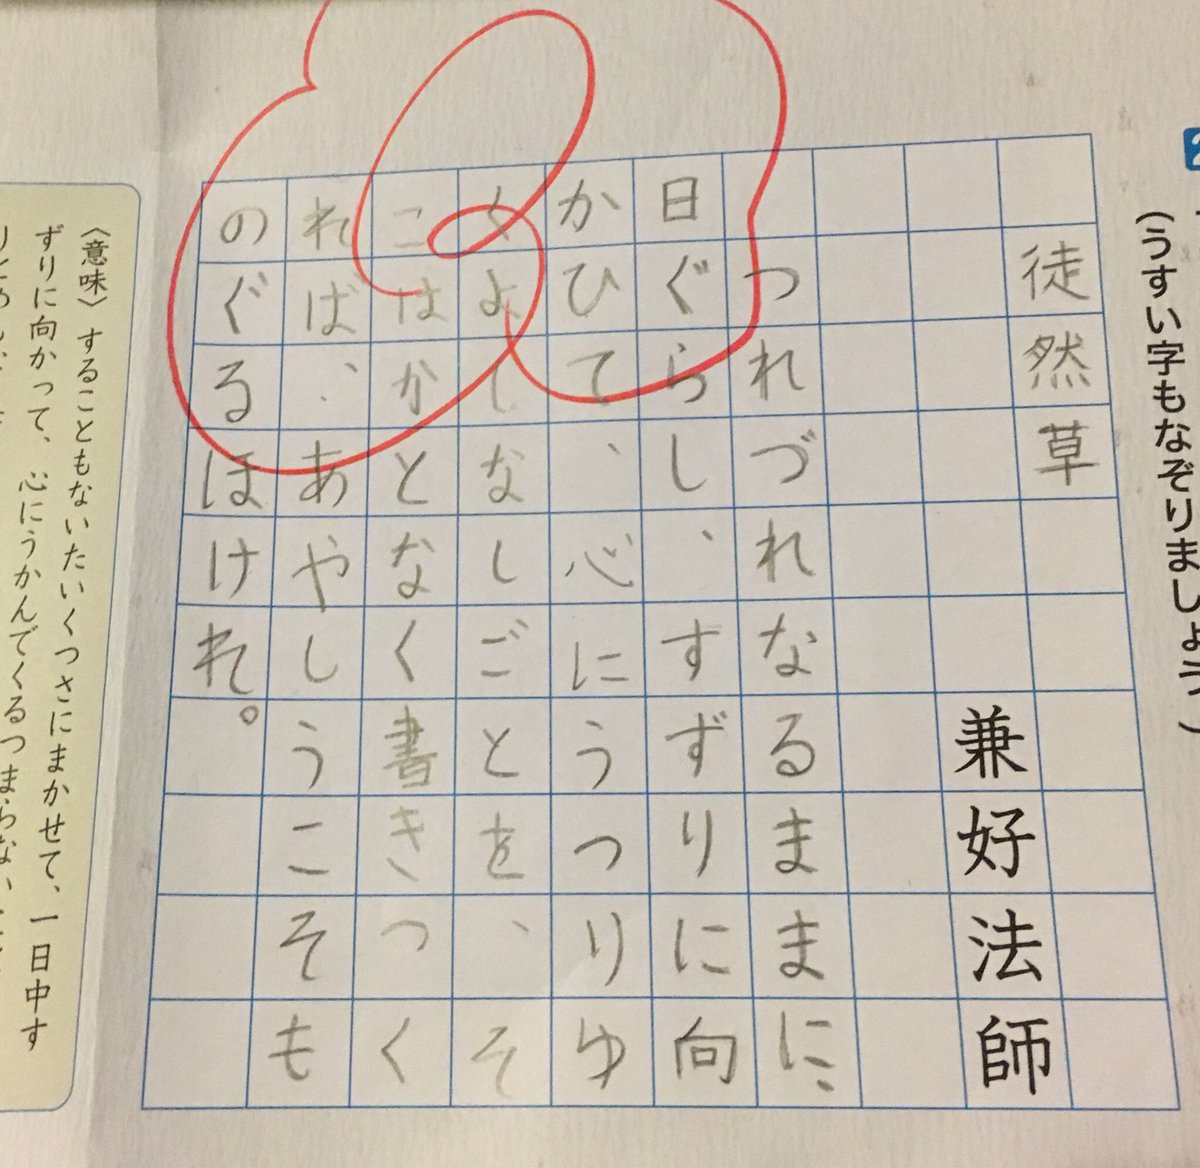 (うすい字もなぞりましょう。)
徒然草
兼好法師
つれづれなるままに、
日ぐらし、すずりに向
かひて、心にうつりゆ
くよしなしごとを、そ
こはかとなく書きつく
れば、あやしうこそも
のぐるほけれ。
〈意味〉することもないたいくつさにまかせて、一日中す
ずりに向かって、心にうかんでくるつまらない